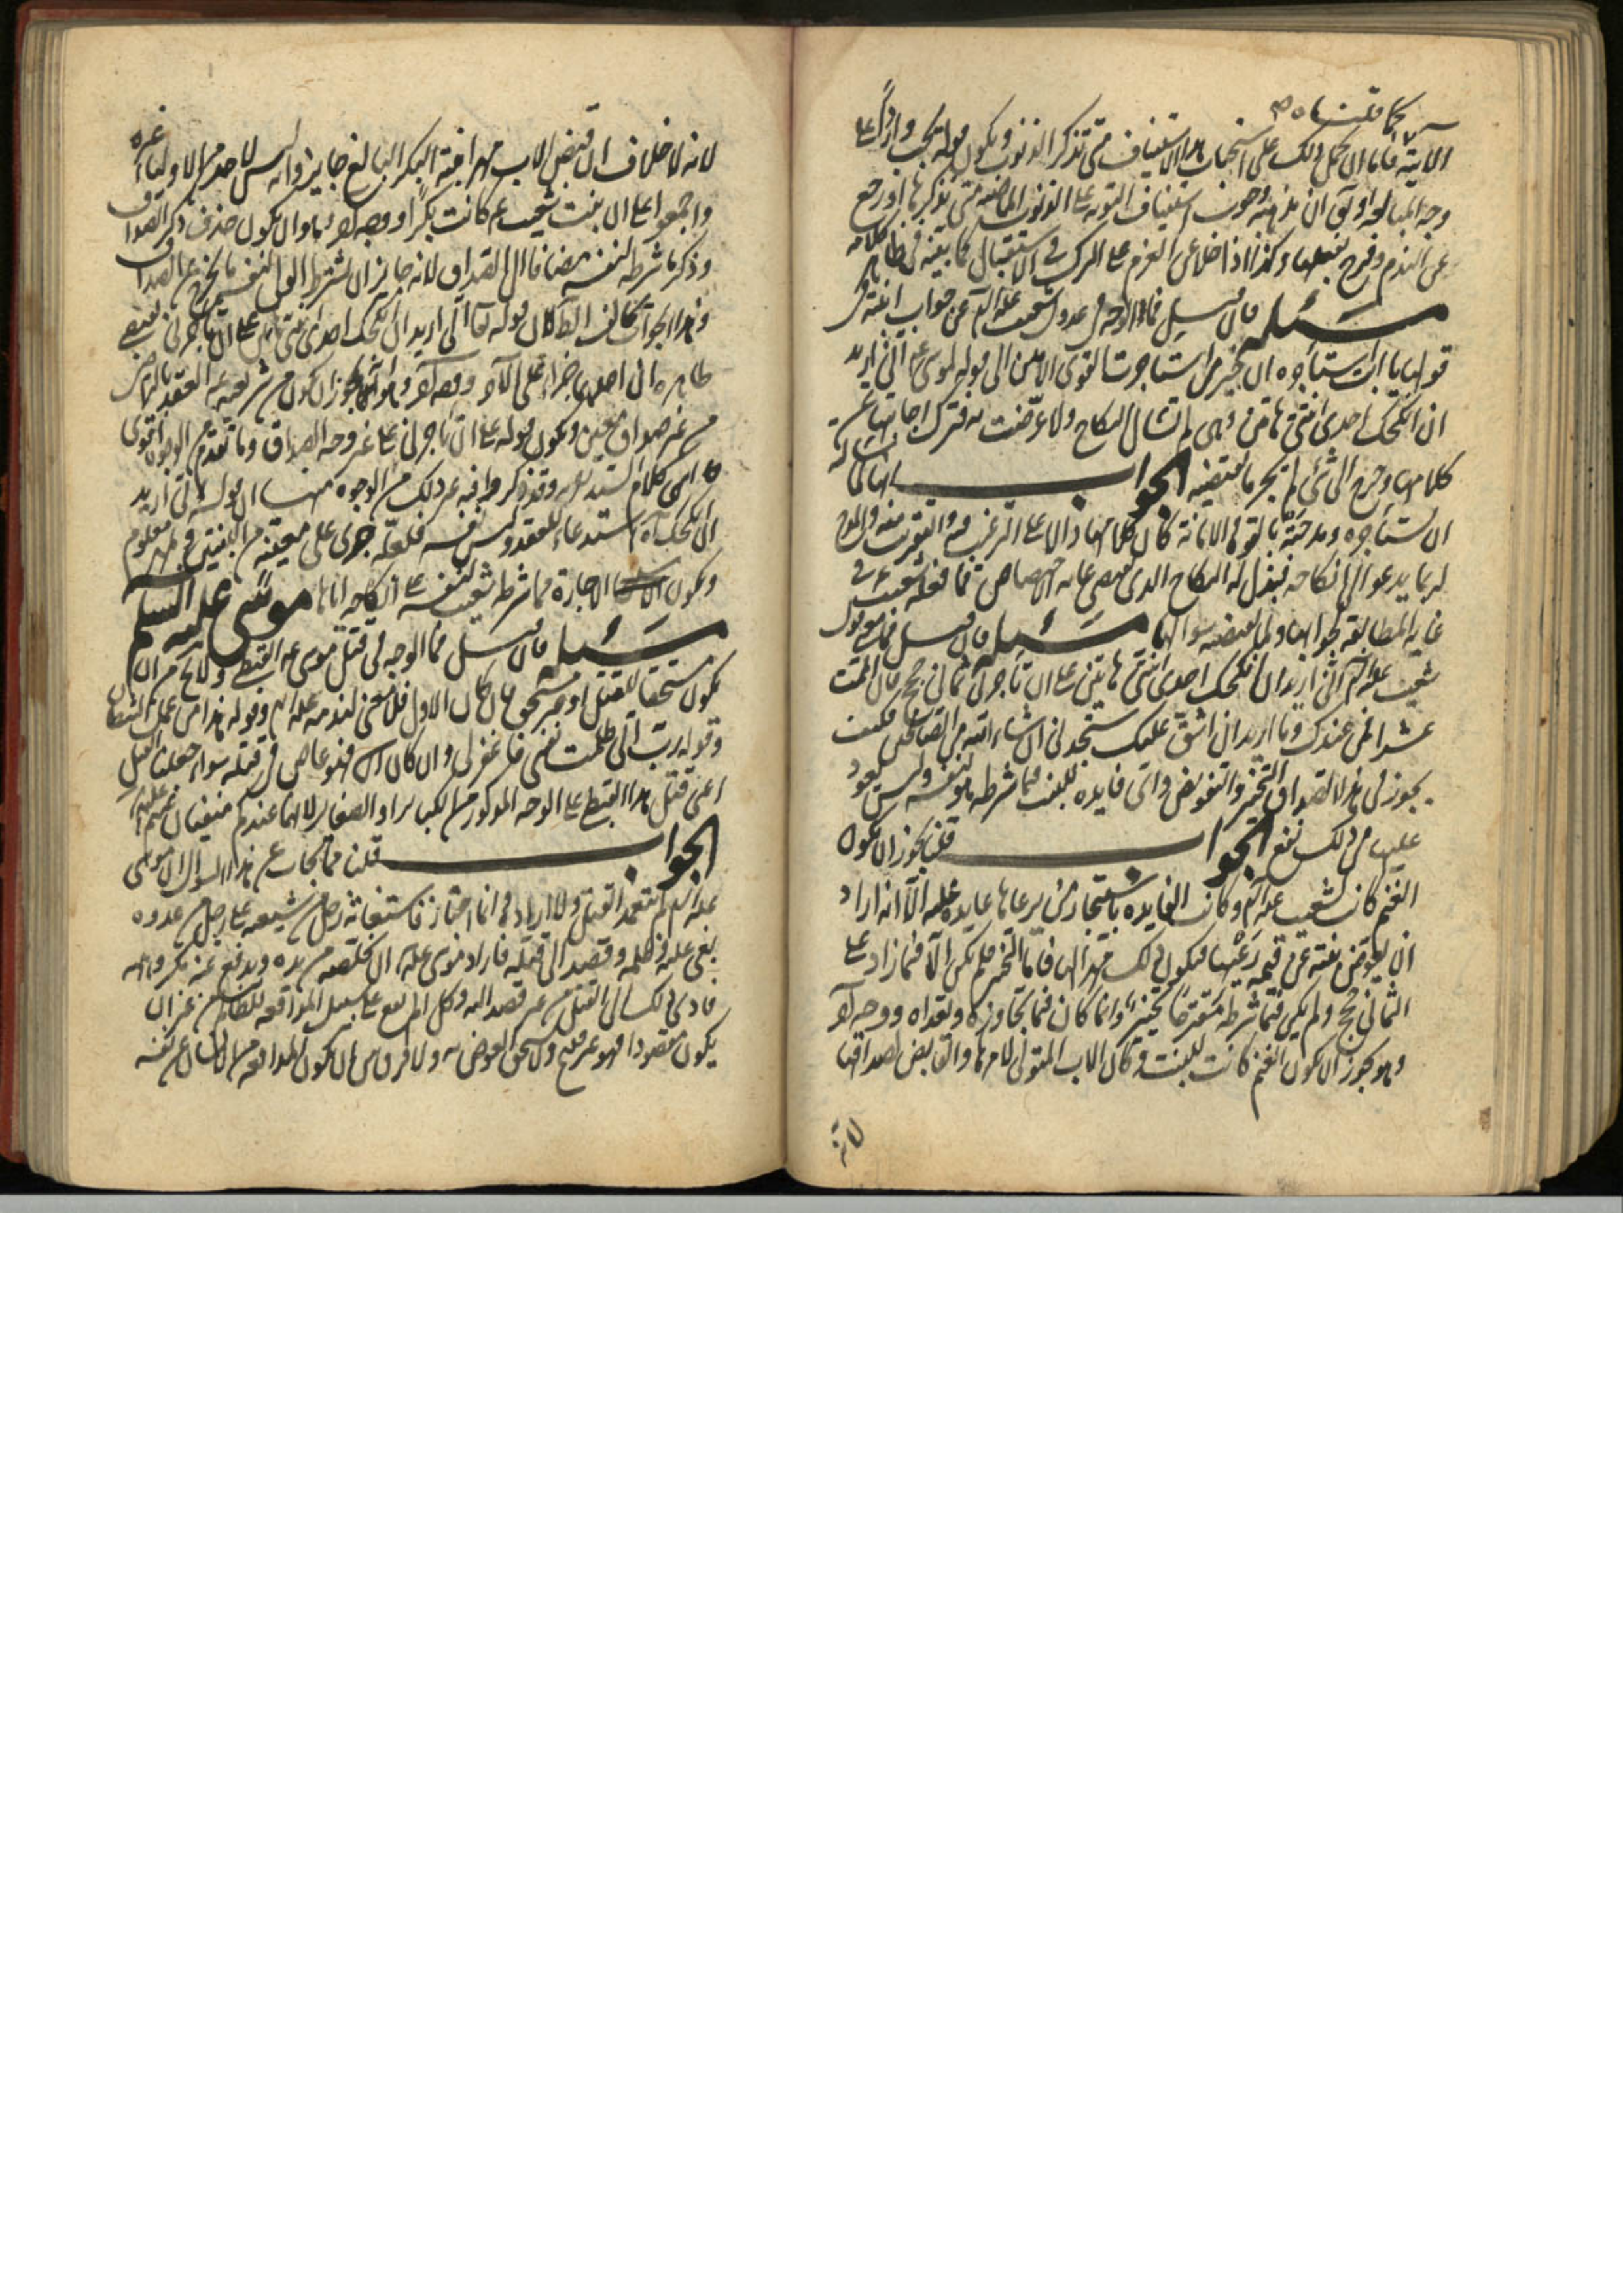 كما قلناه
الآية فاما ان يحمل ذلك على استحباب هذا الاستيناف متى تذكر الذنوب ويكون قوله يجب واردا على
وجه المبالغة او يق ان مذهبه وجوب استيناف التوبة على الذنوب الماضية متى تذكرها او رجع
عن الندم وفرح بفعلها وكذا اذا خلا عن العزم على الترك في الاستقبال كما بينه في كلامه
مسئلة فان قيل فما الوجه في عدول شعيب عليه السلم عن جواب ابنته في
قولها يا ابت استأجره ان خير من استأجرت القوي الامين الى قوله لموسى ع اني اريد
ان انكحك احدى ابنتي هاتين وهي لم تسأل النكاح ولا عرضت به فترك اجابتها عن
كلامها وخرج الى شيء لم يجر ما يقتضيه الجواب انها لما سألته
ان يستأجره ومدحته بالقوة والامانة كان كلامها دالا على الترغيب فيه والتقريب منه والمدح
له بما يدعو الى انكاحه فبذل له النكاح الذي يقتضي غاية الاختصاص فما فعله شعيب في
غاية المطابقة لجوابها ولما يقتضيه سؤالها مسئلة فان قيل فما معنى قول
شعيب عليه السلم اني اريد ان انكحك احدى ابنتي هاتين على ان تأجرني ثماني حجج فان اتممت
عشرا فمن عندك وما اريد ان اشق عليك ستجدني ان شاء الله من الصالحين فكيف
يجوز في هذا الصداق التخيير والتفويض واي فايدة للبنت فيما شرطه هو لنفسه وليس يعود
عليها من ذلك نفع الجواب قلنا يجوز ان يكون
الغنم كانت لشعيب عليه السلم وكانت الفايدة باستيجار من يرعاها عايدة عليه الا انه اراد
ان يعوض بنته عن قيمة رعيها فيكون ذلك مهرا لها فاما التخيير فلم يكن الا فيما زاد على
الثماني حجج ولم يكن فيما شرطه مقترحا تخيير وانما كان فيما تجاوزه وتعداه ووجه آخر
وهو يجوز ان يكون الغنم كانت للبنت وكان الاب المتولي لامرها والقابض لصداقها
لانه
لانه لا خلاف ان قبض الاب مهر ابنته البكر البالغ جايز وانه ليس لاحد من الاولياء غيره
واجمعوا على ان بنت شعيب ع كانت بكرا ووجه آخر وهو ان يكون حذف ذكر الصداق
وذكر ما شرطه لنفسه مضافا الى الصداق لانه جايز ان يشترط الولي لنفسه ما يخرج عن الصداق
وهذا الجواب يخالف الظاهر لان قوله تعالى اني اريد ان انكحك احدى ابنتي هاتين على ان تأجرني يقتضي
ظاهره ان احدهما جزاء على الآخر ووجه آخر وهو انه يجوز ان يكون من شريعته العقد بالتراضي
من غير صداق معين ويكون قوله على ان تأجرني على غير وجه الصداق وما تقدم من الوجوه اقوى
انتهى كلام السيد وقد ذكر فيه غير ذلك من الوجوه منها ان قوله اني اريد
ان انكحك استدعاء للعقد وليس فيه فلعله جرى على معينة من البنتين وبمهر معلوم
ويكون الاجارة مما شرطه شعيب لنفسه على انكاحه اياها موسى عليه السلم
مسئلة فان قيل فما الوجه في قتل موسى ع القبطي وليس يخلو من ان
يكون مستحقا للقتل او غير مستحق فان كان الاول فلا معنى لندمه عليه السلم وقوله هذا من عمل الشيطان
وقوله رب اني ظلمت نفسي فاغفر لي وان كان الثاني فهو عاص في قتله سواء جعلتم القتل
اعني قتل هذا القبطي على الوجه المذكور من الكباير او الصغاير لانهما عندكم منفيان عنهم عليهم السلم
الجواب قلنا مما يجاب عن هذا السؤال ان موسى
عليه السلم لم يتعمد القتل ولا اراده وانما اجتاز فاستغاثه رجل من شيعته على رجل من عدوه
بغى عليه وظلمه وقصد الى قتله فاراد موسى عليه السلم ان يخلصه من يده ويدفع عنه مكروهه
فادى ذلك الى القتل من غير قصد اليه وكل الم يقع على سبيل المدافعة للظالم من غير ان
يكون مقصودا فهو غير قبيح ولا يستحق العوض به ولا فرق بين ان يكون المدافعة من الانسان عن نفسه